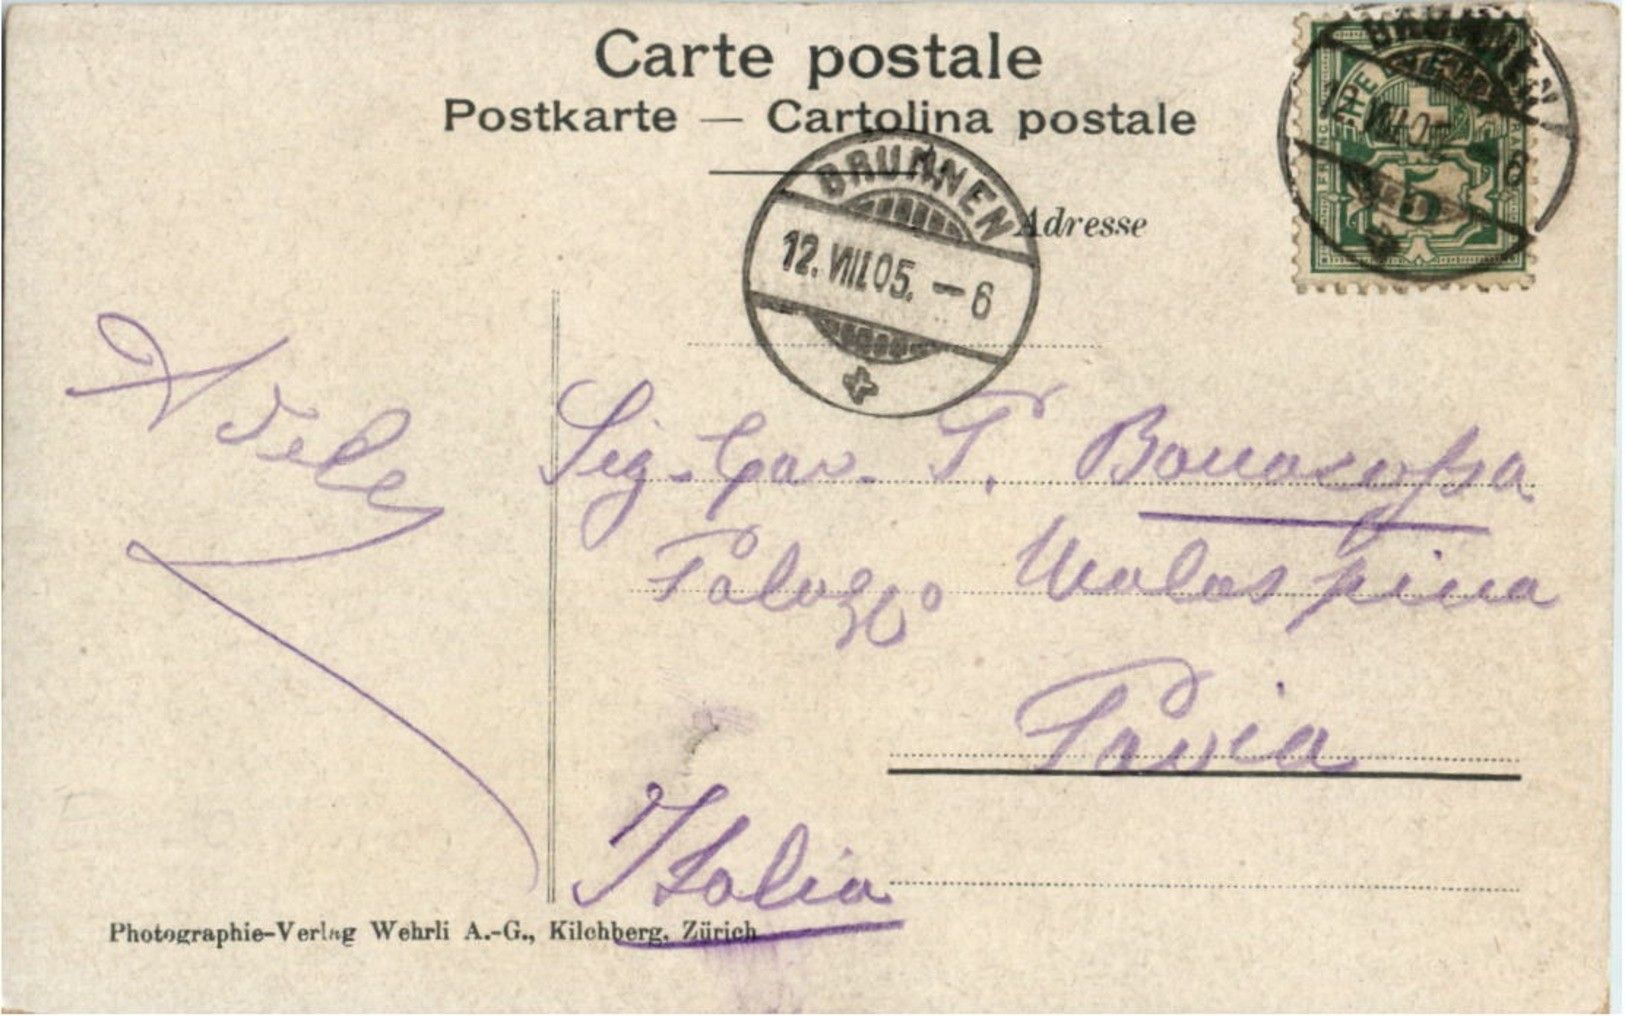 Carte postale
Postkarte — Cartolina postale
BRUNNEN
12.VIII.05. – 6
BRUNNEN
VIII.05
6
5
Adresse
Adele
Sig. Cav. P. Bonacossa
Palazzo Malaspina
Pavia
Italia
Photographie-Verlag Wehrli A.-G., Kilchberg, Zürich